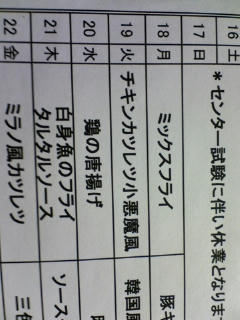 16 土
17 日 ＊センター試験に伴い休業となりま
18 月 ミックスフライ 豚キ
19 火 チキンカツレツ小悪魔風 韓国風
20 水 鶏の唐揚げ
21 木 白身魚のフライ
タルタルソース ソース
22 金 ミラノ風カツレツ 三色